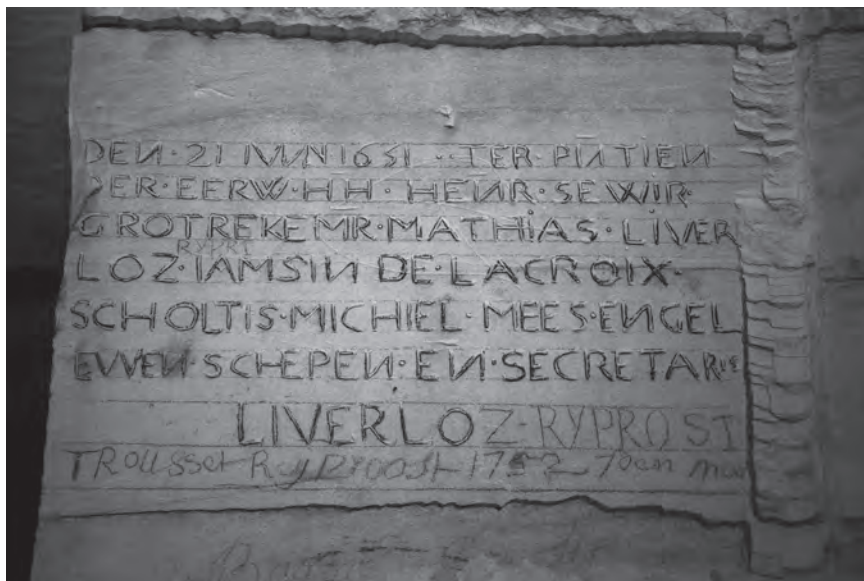 DEN · 21 IVVN 1651 · · TER · PINTIEN
DER · EERW · H H · HENR · SEWIR ·
GROTREKEMR · MATHIAS · LIVER
RYPRE
LOZ · IAMSIN DE · LACROIX ·
SCHOLTIS · MICHIEL · MEES · ENGEL
EVVEN · SCHEPEN · EN · SECRETARIE
LIVERLOZ · RYPROST
TROUSSet RyProost 1752 Toen